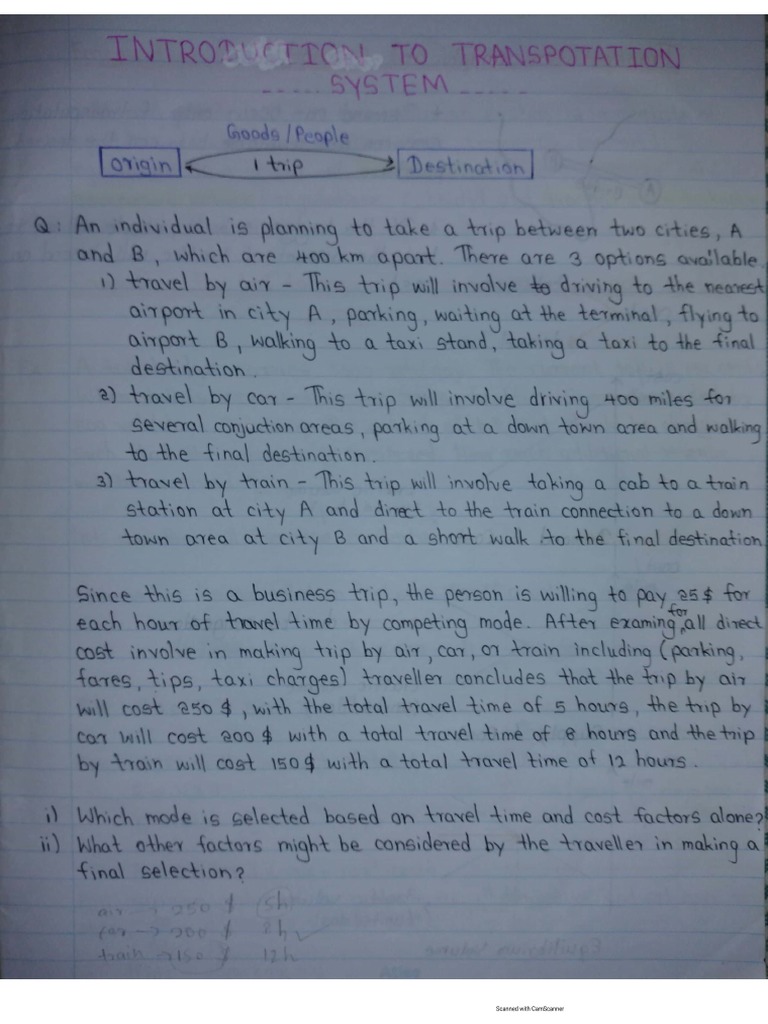 INTRODUCTION TO TRANSPOTATION
SYSTEM
Goods/People
Origin 1 trip Destination
Q: An individual is planning to take a trip between two cities, A
and B, which are 400 km apart. There are 3 options available.
1) travel by air - This trip will involve to driving to the nearest
airport in city A, parking, waiting at the terminal, flying to
airport B, walking to a taxi stand, taking a taxi to the final
destination.
2) travel by car - This trip will involve driving 400 miles for
several conjuction areas, parking at a down town area and walking
to the final destination.
3) travel by train - This trip will involve taking a cab to a train
station at city A and direct to the train connection to a down
town area at city B and a short walk to the final destination
Since this is a business trip, the person is willing to pay 25$ for
each hour of travel time by competing mode. After examing for all direct
cost involve in making trip by air, car, or train including (parking,
fares, tips, taxi charges) traveller concludes that the trip by air
will cost 250$, with the total travel time of 5 hours, the trip by
car will cost 200$ with a total travel time of 8 hours and the trip
by train will cost 150$ with a total travel time of 12 hours.
i) Which mode is selected based on travel time and cost factors alone?
ii) What other factors might be considered by the traveller in making a
final selection?
air → 250 $ 5h
car → 200 $ 8h
train → 150 $ 12h
Scanned with CamScanner